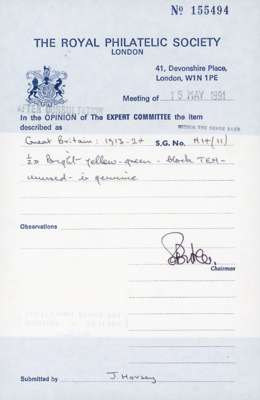 Nº 155494
THE ROYAL PHILATELIC SOCIETY
LONDON
41, Devonshire Place,
London, W1N 1PE
Meeting of 15 MAY 1991
AFTER CONSULTATION
In the OPINION of The EXPERT COMMITTEE the item
described as
Great Britain: 1913-24 S.G. No.
½d bright yellow-green - block TEN -
unused - is genuine
Observations
Chairman
Submitted by J. Horsey